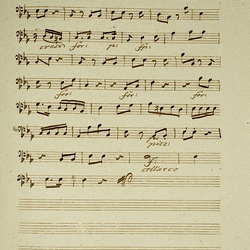 cresc: for: po: fp:
for: for: for:
pizz:
coll arco